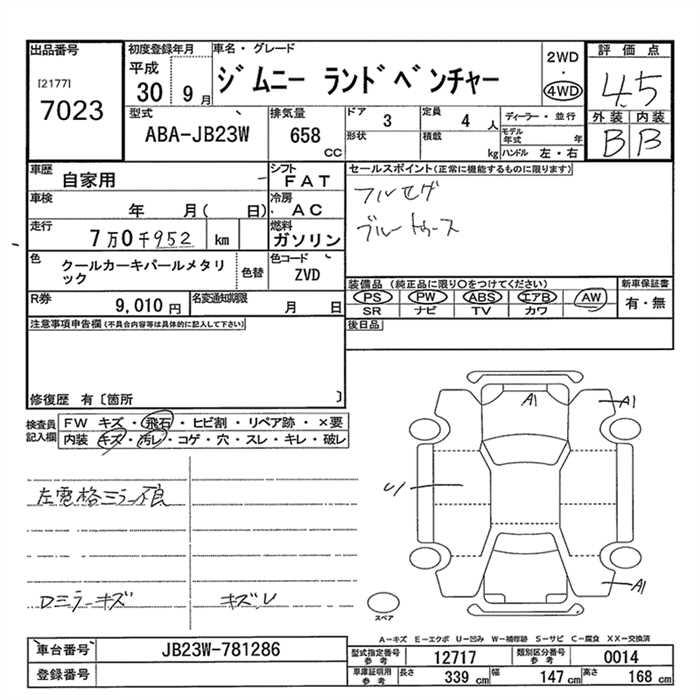 出品番号
[2177]
7023
初度登録年月
平成
30 9月
車名・グレード
ジムニー ランドベンチャー
2WD
・
4WD
評価点
4.5
外装 内装
B B
型式
ABA-JB23W
排気量
658
CC
ドア 3
形状
定員 4 人
積載 kg
ディーラー・並行
モデル年式 年
ハンドル 左・右
車歴
自家用
シフト
FAT
車検
年 月( 日)
冷房
AC
走行
7万0千952 km
燃料
ガソリン
色
クールカーキパールメタリック
色替
色コード
ZVD
R券
9,010円
名変通知期限
月 日
セールスポイント(正常に機能するものに限ります)
フルセグ
ブルートゥース
装備品(純正品に限り○をつけてください)
PS PW ABS エアB AW
SR ナビ TV カワ
新車保証書
有・無
後日品
注意事項申告欄(不具合内容等は具体的に記入して下さい)
修復歴 有〔箇所 〕
検査員
記入欄
FW キズ・飛石・ヒビ割・リペア跡・×要
内装 キズ・汚レ・コゲ・穴・スレ・キレ・破レ
左電格ミラー不良
Dミラーキズ
キズレ
A1
A1
A1
スペア
A-キズ E-エクボ U-凹み W-補修跡 S-サビ C-腐食 XX-交換済
車台番号
JB23W-781286
登録番号
型式指定番号
参考
12717
類別区分番号
参考
0014
車庫証明用
参考
長さ 339 cm
幅 147 cm
高さ 168 cm